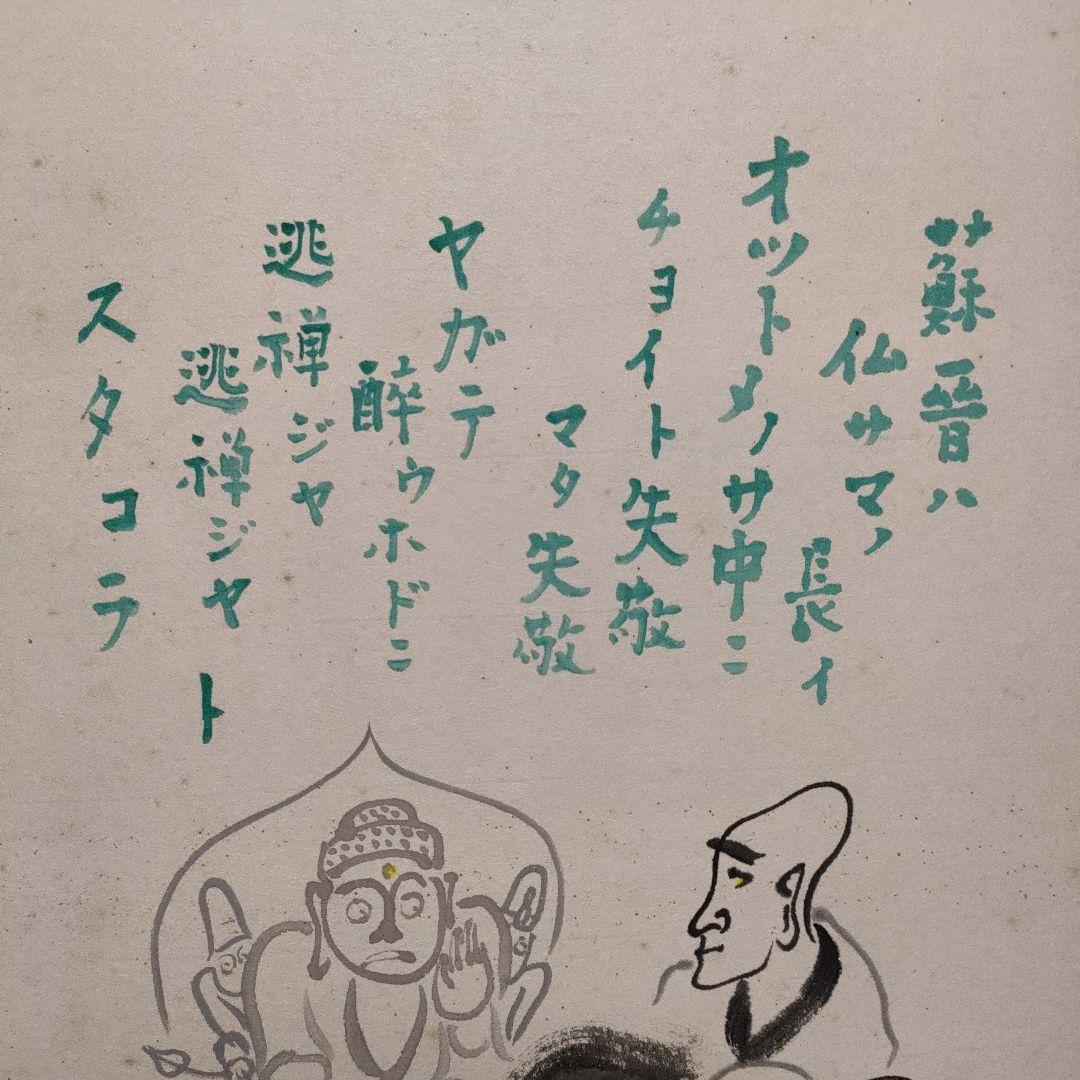 蘇晋ハ
仏サマノ
長イ
オットメノサ中ニ
チョイト失敬
マタ失敬
ヤガテ
酔ウホドニ
逃禅ジヤ
逃禅ジヤト
スタコラ